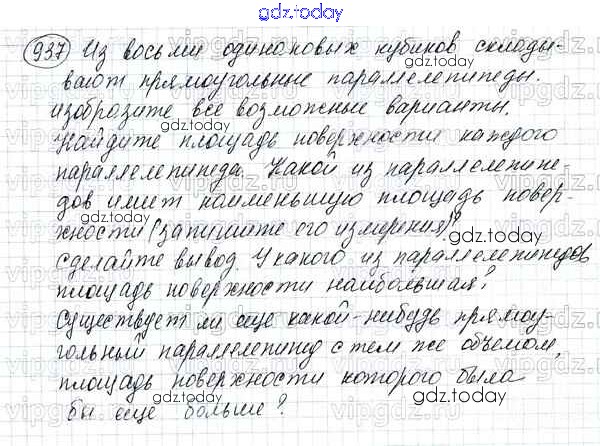 gdz.today
937 Из восьми одинаковых кубиков склады-
вают прямоугольные параллелепипеды.
изобразите все возможные варианты.
gdz.today
Найдите площадь поверхности каждого
параллелепипеда. Какой из параллелепипе-
дов имеет наименьшую площадь повер-
gdz.today
хности (запишите его измерения)?
gdz.today
Сделайте вывод. У какого из параллелепипедов
площадь поверхности наибольшая?
gdz.today
Существует ли еще какой-нибудь прямоу-
гольный параллелепипед с тем же объемом,
gdz.today
площадь поверхности которого была
gdz.today
бы еще больше?